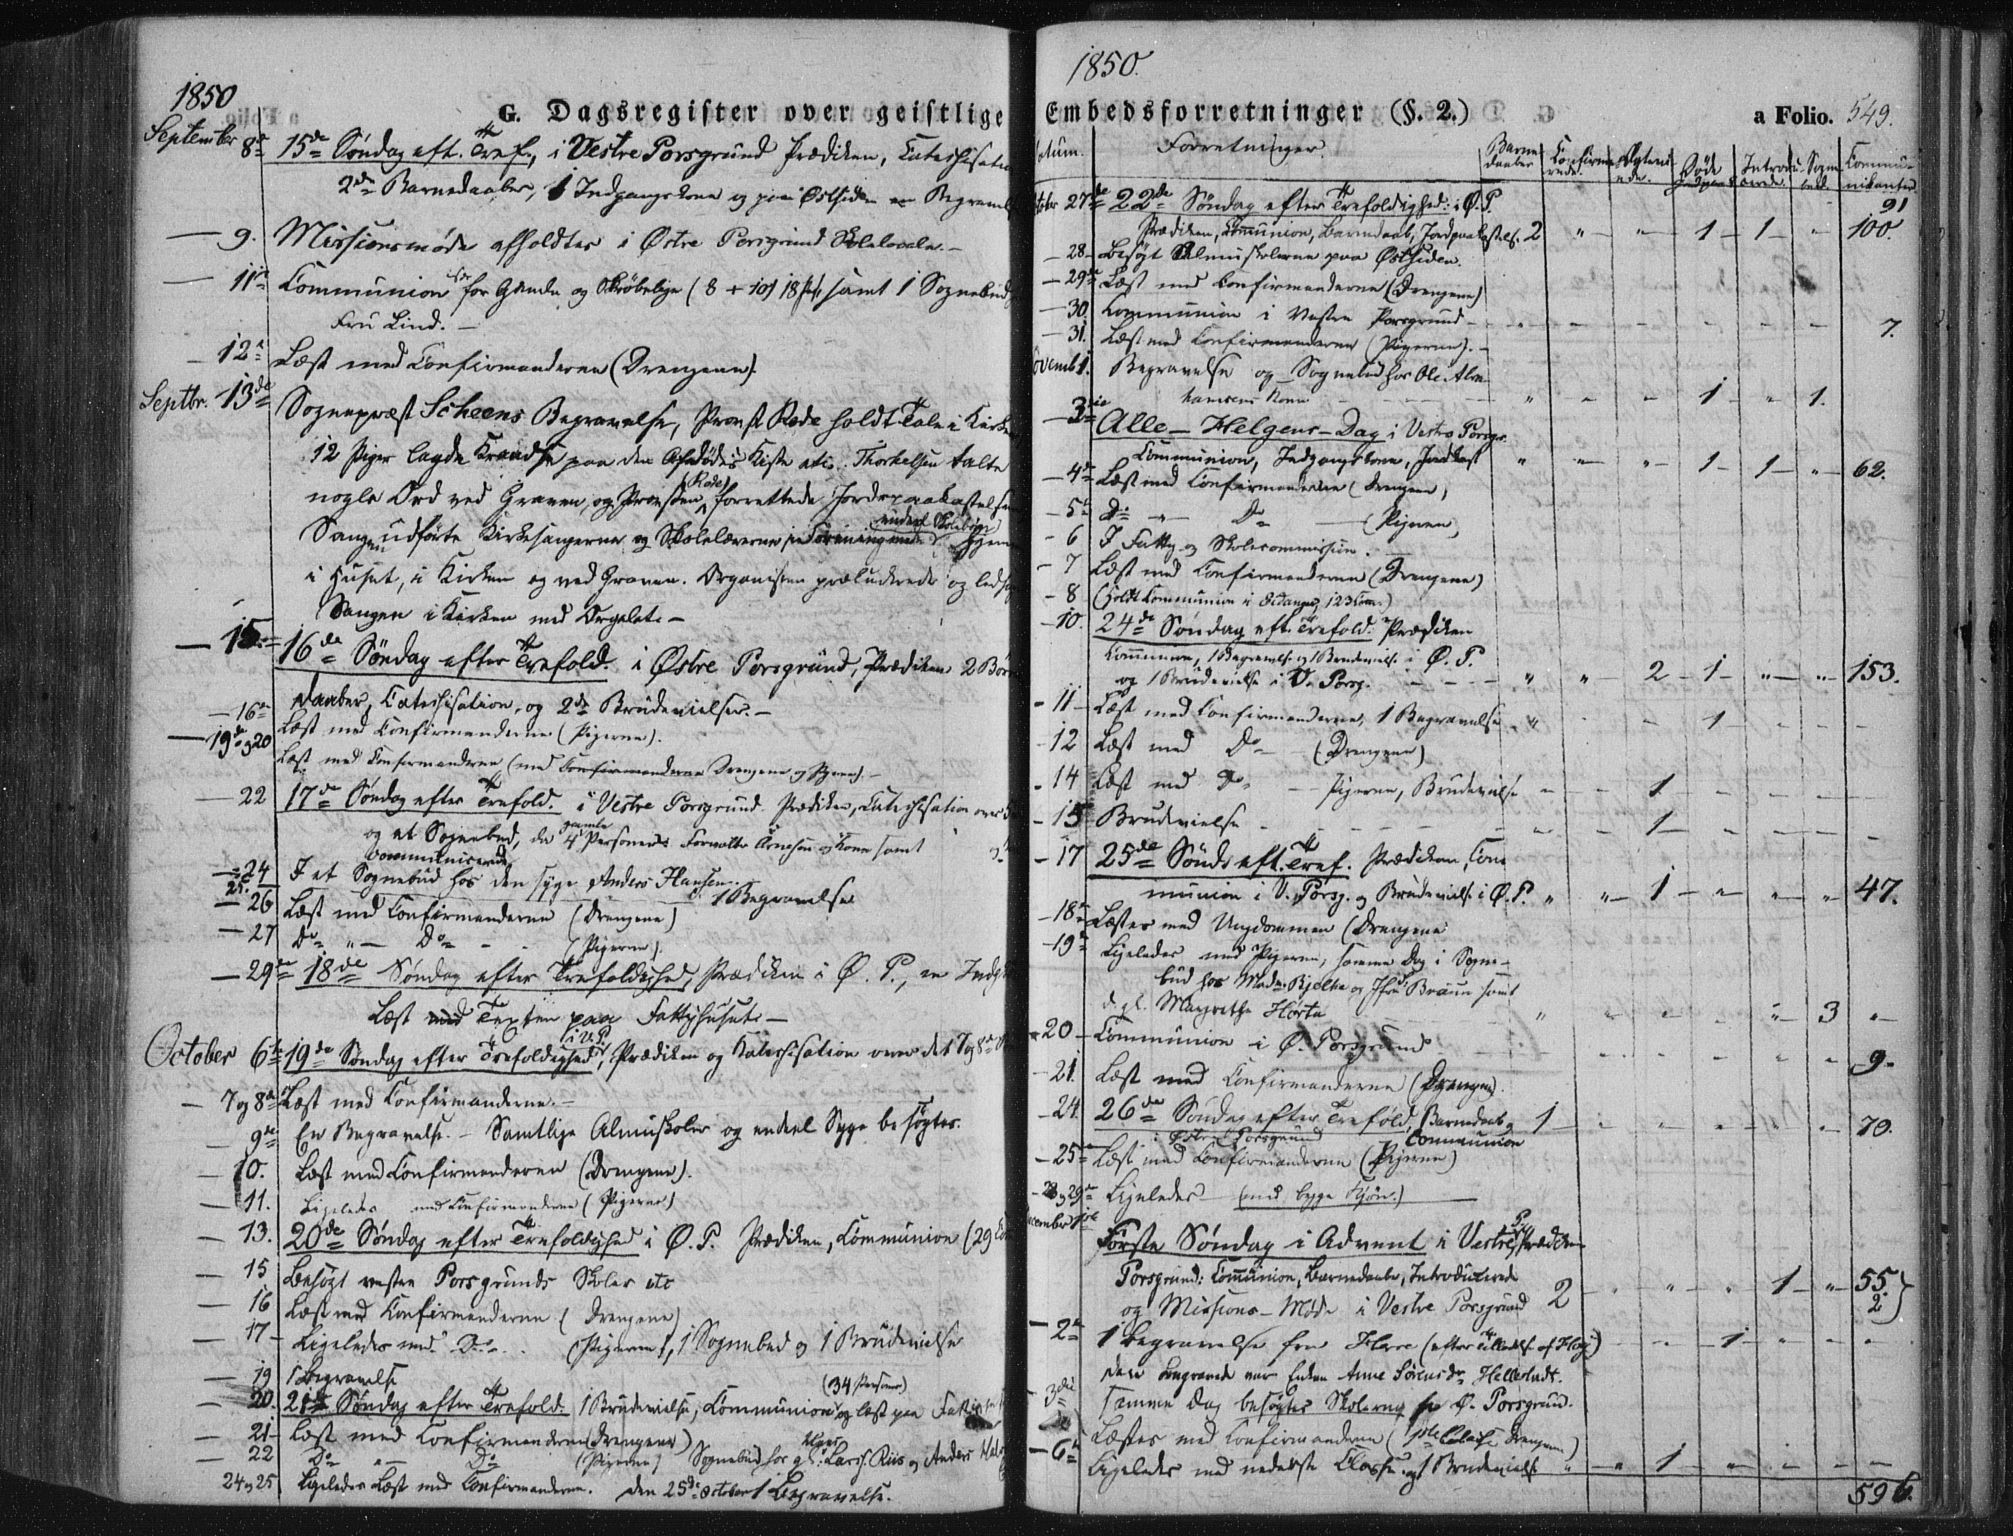 1850
G. Dagsregister over geistlige
September 8de 15de Søndag eft. Tref., i Vestre Porsgrund Prædiken, Catechisation
2de Barnedaaber, 1 Indgangskone og paa Østsiden en Begravelse
— 9. Missionsmøde afholdtes i Østre Porsgrund Skolelocale. —
— 11te Communion for Gamle og Skrøbelige (8 + 10) 18 samt 1 Sognebud
Fru Lind. —
— 12te Læst med Confirmanderne (Drengene).
Septbr. 13de Sognepræst Scheens Begravelse, Provst Rode holdt Tale i Kirken
12 Piger lagde Krandse paa den Afdødes Kiste Thorkelsen talte
nogle Ord ved Graven, og Provsten (Rode) forrettede Jordpaakastelsen
Sangen udførte Kirkesangerne og Skolelærerne i Forening med
i Huset, i Kirken og ved Graven. Organisten præluderede og ledsagede
Sangen i Kirken med Orgelet. —
— 15. 16de Søndag efter Trefold. i Østre Porsgrund, Prædiken 2 Børne-
daaber, Catechisation, og 2de Brudevielser. —
— 16de Læst med Confirmanderne (Pigerne).
— 19de og 20 Læst med Confirmanderne (med Confirmanderne Drengene og Pigerne). —
— 22 17de Søndag efter Trefold. i Vestre Porsgrund Prædiken, Catechisation over
og et Sognebud, da 4 gamle Personer Forvalter Arnesen og Kone samt
communicerede
— 24 I et Sognebud hos den syge Anders Hansen.
25. 1 Begravelse
— 26 Læst med Confirmanderne (Drengene)
— 27 Do " — Do - - (Pigerne).
— 29de 18de Søndag efter Trefoldighed, Prædiken i Ø. P., en Indg
Læst med Texten paa Fattighuset. —
October 6te 19de Søndag efter Trefoldighed, i V.P. Prædiken og Katechisation over det 7 og 8de
— 7 og 8de Læst med Confirmanderne. —
— 9de En Begravelse. — Samtlige Almuskoler og endeel Syge besøgtes.
— 10. Læst med Confirmanderne (Drengene).
— 11. Ligeledes med Confirmanderne (Pigerne)
— 13. 20de Søndag efter Trefoldighed i Ø. P. Prædiken, Communion (29
— 15 Besøgt vestre Porsgrunds Skoler etc
— 16 Læst med Confirmanderne (Drengene)
— 17 Ligeledes med Do. (Pigerne), 1 Sognebud og 1 Brudevielse
— 19 1 Begravelse
— 20. 21de Søndag efter Trefold. 1 Brudevielse, Communion (34 Personer) og læst paa
— 21 Læst med Confirmanderne (Drengene)
— 22 Do " — Do (Pigerne) Sognebud hos Lars. Riis og Anders
24 og 25 Ligeledes Læst med Confirmanderne. Den 25de October 1 Begravelse.
1850.
Embedsforretninger (§. 2.) a Folio. 549.
Datum. Forretninger. Barnedaaber Confirmerede. Ægteviede. Døde Introducerede. Sognebud. Communikanter
October 27de 22de Søndag efter Trefoldighed: i Ø. P. 91
Prædiken, Communion, Barnedaab, Jordpaakastelse. 2 " — " — 1 — 1 — " — 100.
— 28 — Besøgt Almuskolerne paa Østsiden.
— 29de Læst med Confirmanderne (Drengene)
— 30. Communion i Vestre Porsgrund — 7.
— 31. Læst med Confirmanderne (Pigerne). —
Novemb 1. Begravelse og Sognebud hos Ole Abra-
hamsens Kone " - - 1 - " - 1.
— 3die Alle — Helgens — Dag i Vestre Porsgr.
Communion, Indgangskone, " — " — 1 — 1 — " — 62.
— 4de Læst med Confirmanderne (Drengene)
— 5te Do " — Do (Pigerne)
— 6 I Fattig og Skolecommission.
— 7 Læst med Confirmanderne (Drengene)
— 8 (Holdt Communion i Eidanger, 123 Com.)
— 10. 24de Søndag eft. Trefold. Prædiken
Communion, 1 Begravelse og 1 Brudevielse i Ø. P.
og 1 Brudevielse i V. Porsg. " " 2 — 1 — " — " — 153.
— 11 — Læst med Confirmanderne, 1 Begravelse " - - 1 - - -
— 12 Læst med Do — (Drengene)
— 14 Læst med Do — Pigerne, Brudevielse — — 1 —
— 15 Brudevielse — — 1 —
— 17 25de Sønd. eft. Tref. Prædiken, Com-
munion i V. Porsg. og Brudevielse i Ø. P. " " — 1 — " — " — " — 47.
— 18de Læstes med Ungdommen (Drengene
— 19de Ligeledes med Pigerne, samme Dag i Sogne-
bud hos Mad. Bjelke og Jfru Braun samt
d. gl. Margrethe Hørte " — 3 "
— 20 — Communion i Ø. Porsgrund — 9.
— 21. Læst med Confirmanderne (Drengene).
— 24. 26de Søndag efter Trefold, Barnedaab og 1 — 70.
i Østre Porsgrund Communion
— 25de Læst med Confirmanderne (Pigerne)
— 28 og 29de Ligeledes — (med begge Kjøn.) —
December 1ste Første Søndag i Advent i Vestre Prædiken
Porsgrund: Communion, Barnedaaber, Introducerede
og Missions — Møde i Vestre Porsgrund 2 - " - 1 — " — 55. 2 }
— 2de 1 Begravelse fra (efter Tilladelse af ) - - 1 - -
Den Begravede var Enken Anne Sørensdr. Hellestvedt.
— 3die samme Dag besøgtes Skolerne paa Ø. Porsgrund.
Læstes med Confirmanderne (1ste Classe Drengene)
— 6te Ligeledes med nederste Classe og 1 Brudevielse " — " 1 — " — " — —
596.